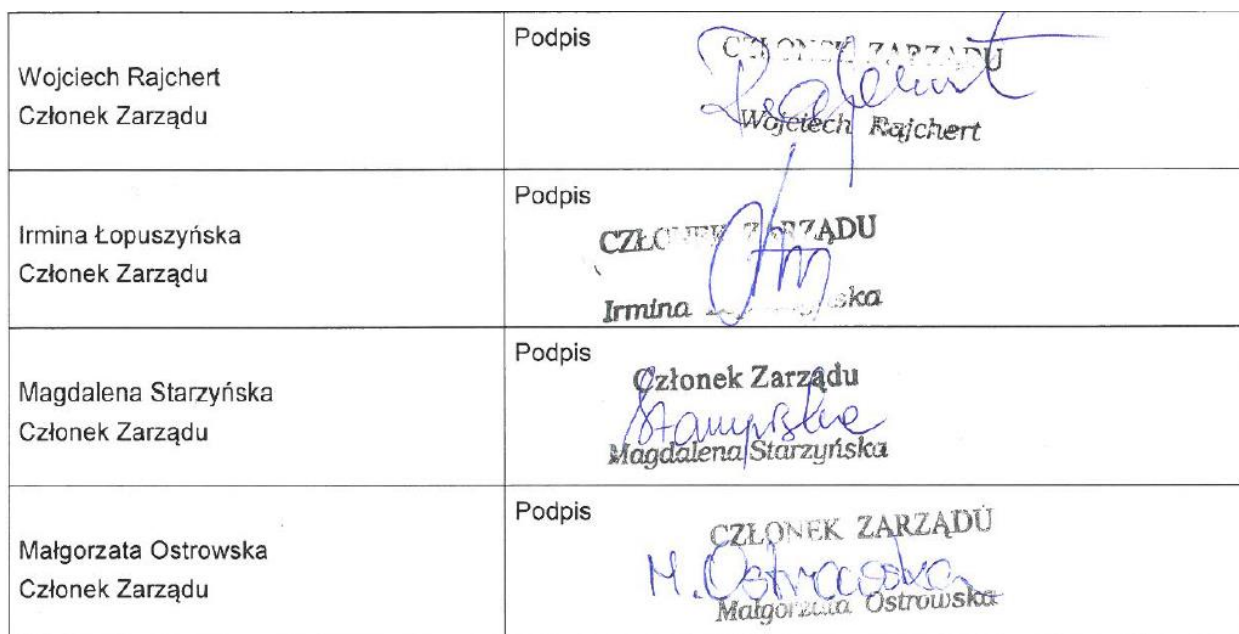 Wojciech Rajchert
Członek Zarządu
Podpis
CZŁONEK ZARZĄDU
Wojciech Rajchert
Irmina Łopuszyńska
Członek Zarządu
Podpis
CZŁONEK ZARZĄDU
Irmina
Magdalena Starzyńska
Członek Zarządu
Podpis
Członek Zarządu
Starzyńska
Magdalena Starzyńska
Małgorzata Ostrowska
Członek Zarządu
Podpis
CZŁONEK ZARZĄDU
M. Ostrowska
Małgorzata Ostrowska